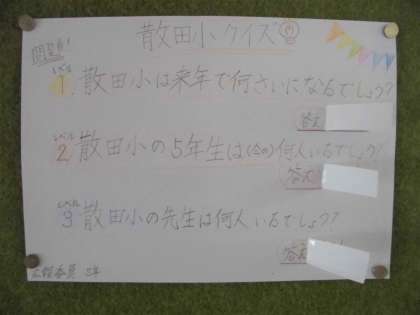 散田小クイズ
問題!
レベル1 散田小は来年で何さいになるでしょう?
答え
レベル2 散田小の5年生は(今の)何人いるでしょう?
答え
レベル3 散田小の先生は何人いるでしょう?
答え
広報委員